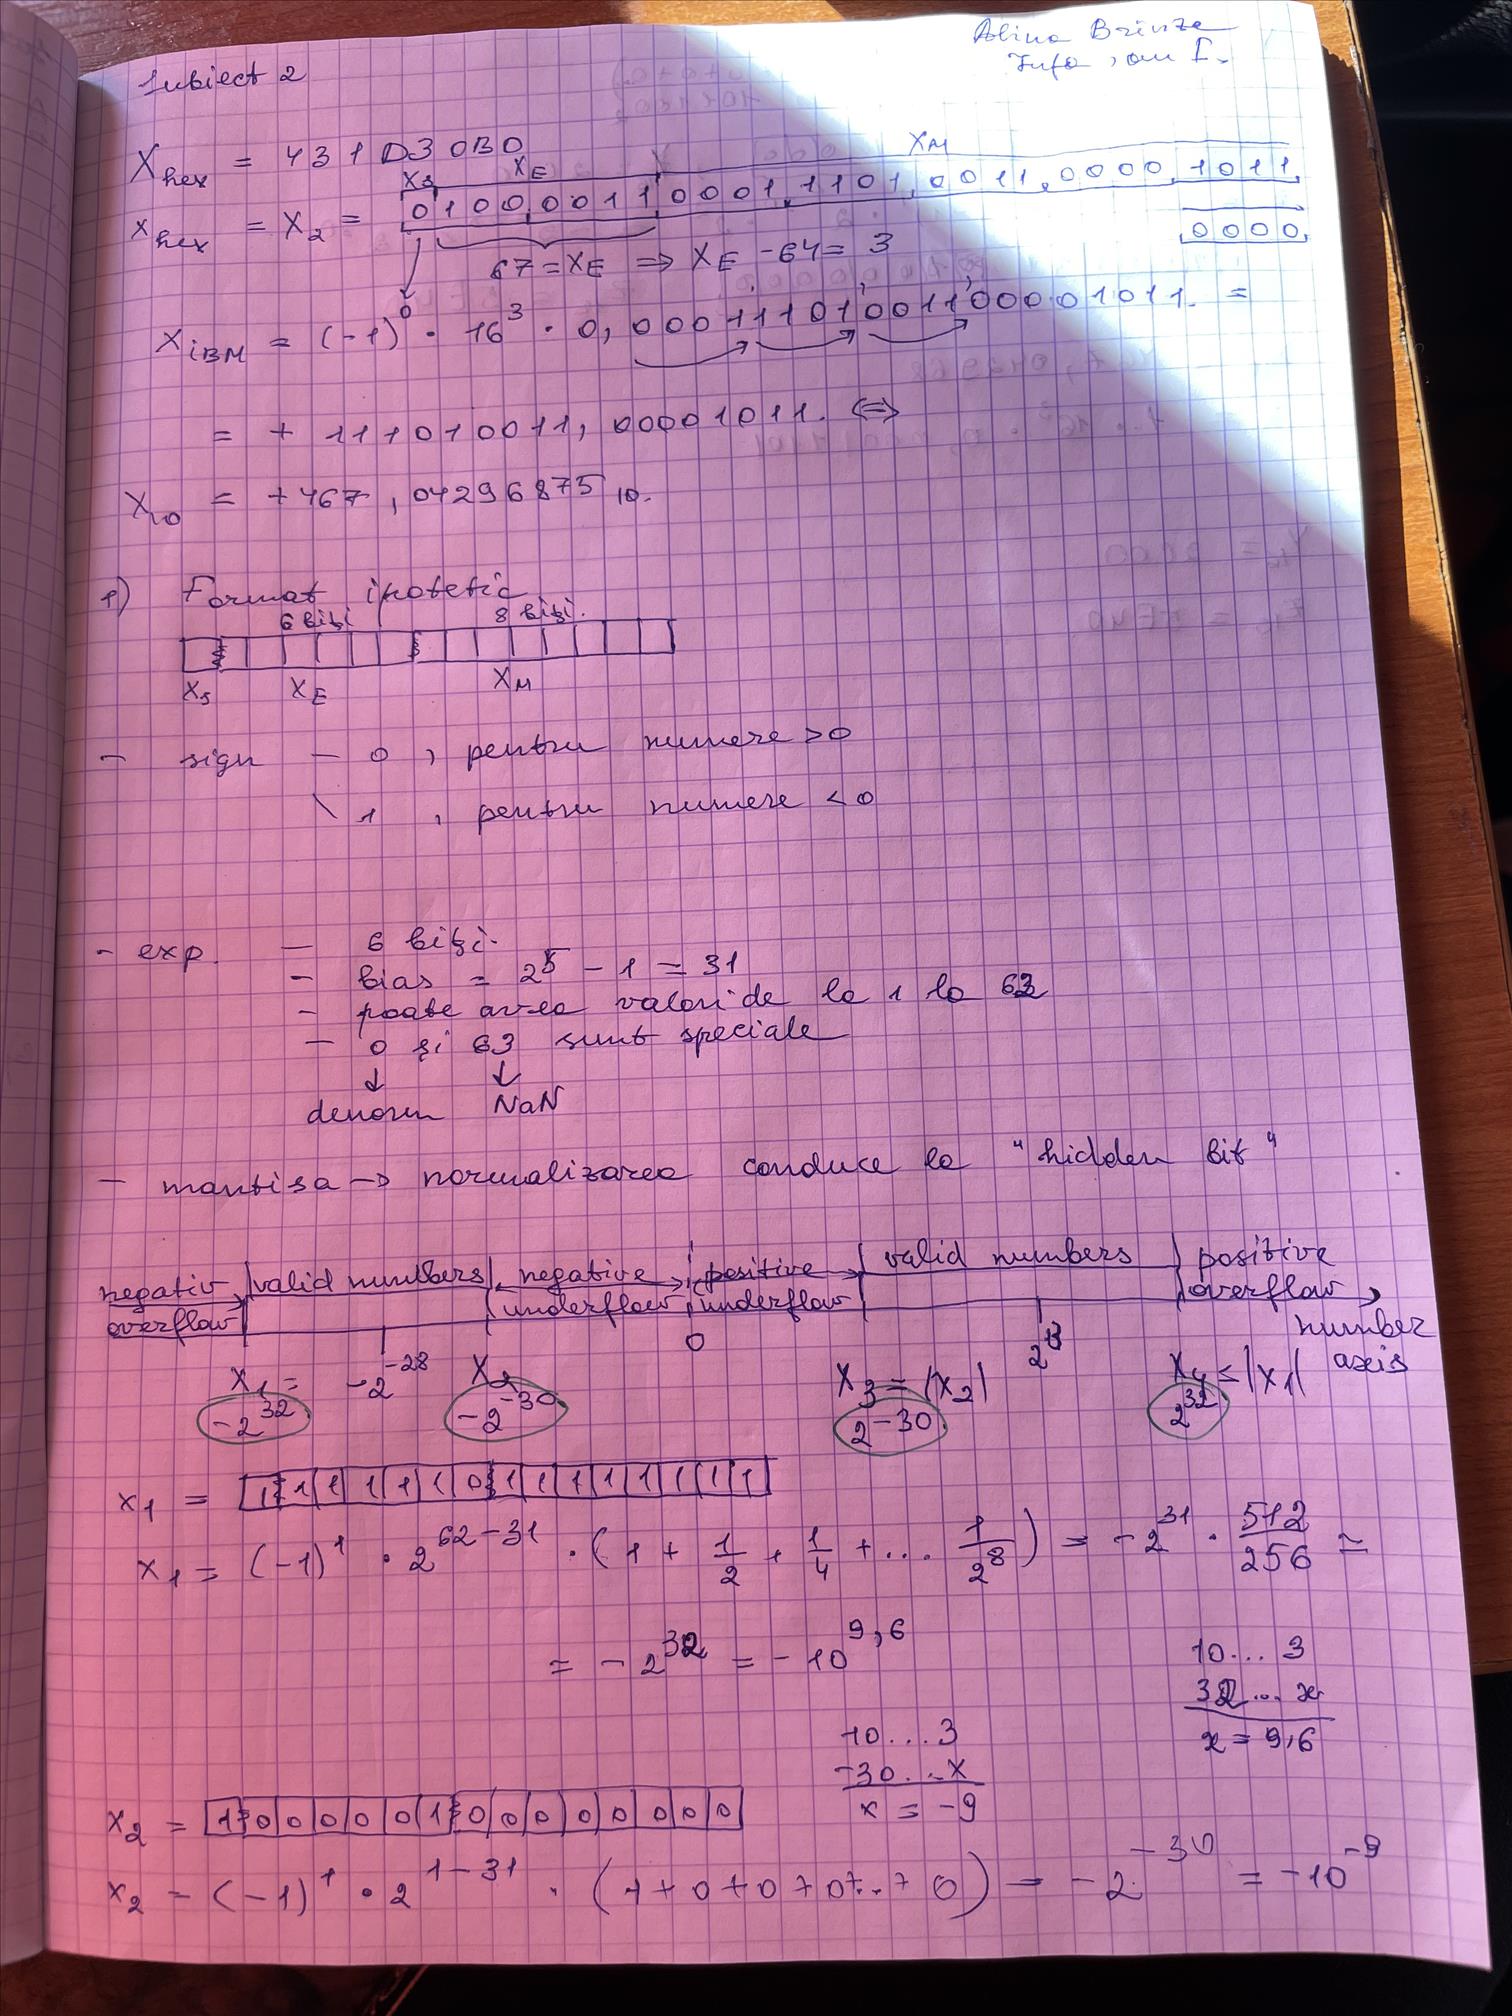 Subiect 2
Alina Brinze
Info, an I.
X_hex = 431D30B0
X_S X_E X_M
X_hex = X_2 = 0100 0011 0001 1101 0011 0000 1011
0000
67 = X_E ⇒ X_E - 64 = 3
0
X_IBM = (-1)^0 · 16^3 · 0,00011101001100001011. =
= + 111010011,00001011. ⇔
X_10 = +467,04296875 10.
1) Format ipotetic
6 biți 8 biți.
X_S X_E X_M
- sign - 0, pentru numere > 0
\ 1, pentru numere < 0
- exp. - 6 biți.
- bias = 2^5 - 1 = 31
- poate avea valori de la 1 la 62
- 0 și 63 sunt speciale
↓ ↓
denorm NaN
- mantisa → normalizarea conduce la "hidden bit"
negativ overflow | valid numbers | negative underflow | positive underflow | valid numbers | positive overflow
0 2^13 number axis
X_1 = -2^-28 X_2 X_3 = |X_2| X_4 ≤ |X_1|
-2^32 -2^-30 2^-30 2^32
x_1 = 1 1 1 1 1 1 0 1 1 1 1 1 1 1 1
x_1 = (-1)^1 · 2^62-31 · (1 + 1/2 + 1/4 + ... 1/2^8) = -2^31 · 512/256 ≃
= -2^32 = -10^9,6
10 ... 3
32 ... x
x = 9,6
10 ... 3
-30 ... x
x = -9
x_2 = 1 0 0 0 0 0 1 0 0 0 0 0 0 0 0
x_2 = (-1)^1 · 2^1-31 · (1+0+0+0+..+0) = -2^-30 = -10^-9